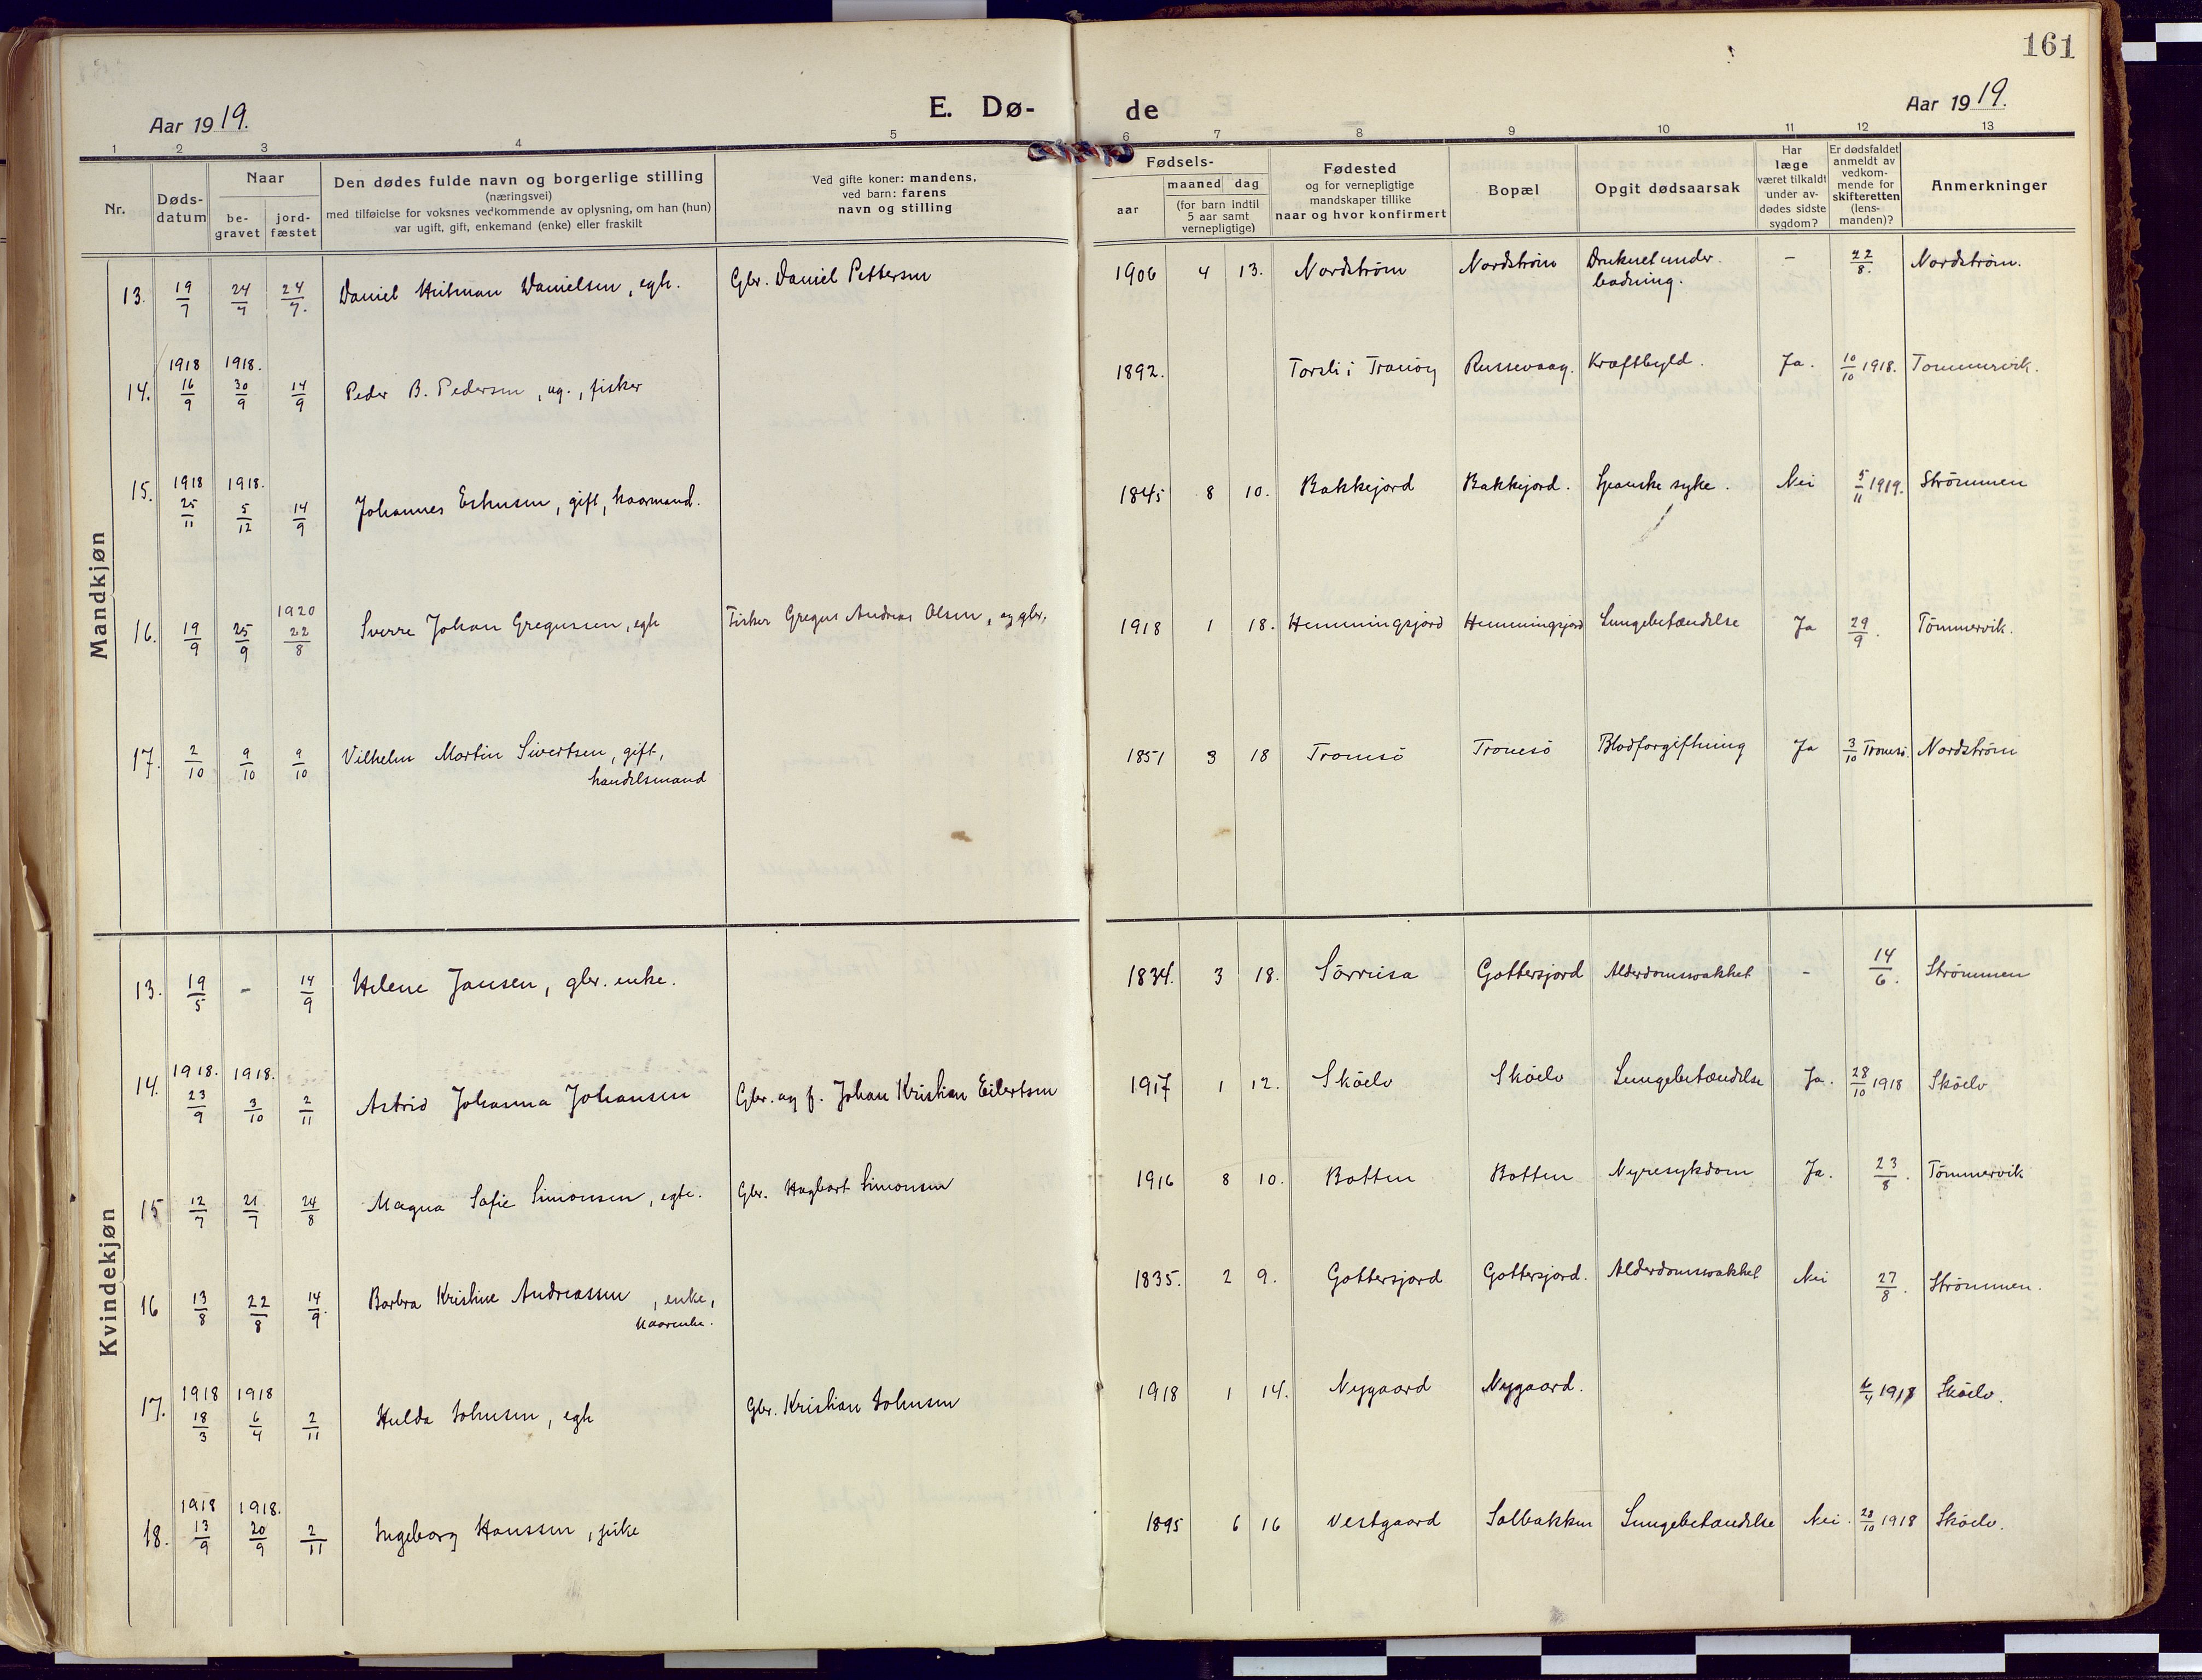 161
Aar 1919.
E. Dø-
de
Aar 1919.
1 2 3 4 5 6 7 8 9 10 11 12 13
Nr.
Døds-
datum
Naar
be-
gravet
jord-
fæstet
Den dødes fulde navn og borgerlige stilling
(næringsvei)
med tilføielse for voksnes vedkommende av oplysning, om han (hun)
var ugift, gift, enkemand (enke) eller fraskilt
Ved gifte koner: mandens,
ved barn: farens
navn og stilling
Fødsels-
aar
maaned dag
(for barn indtil
5 aar samt
vernepligtige)
Fødested
og for vernepligtige
mandskaper tillike
naar og hvor konfirmert
Bopæl
Opgit dødsaarsak
Har
læge
været tilkaldt
under av-
dødes sidste
sygdom?
Er dødsfaldet
anmeldt av
vedkom-
mende for
skifteretten
(lens-
manden)?
Anmerkninger
Mandkjøn
13. 19/7 24/7 24/7. Daniel Hilman Danielsen, egte. Gbr. Daniel Pettersen 1906 4 13. Nordstrøm Nordstrøm Druknet under - 22/8. Nordstrøm.
badning.
1918 1918.
14. 16/9 30/9 14/9 Peder B. Pedersen, ug., fisker 1892. Torsli i Tranöy Russevaag. Kræftbyld. Ja. 10/10 1918. Tommervik.
1918 1918.
15. 25/11 5/12 14/9 Johannes gift, kaarmand. 1845 8 10. Bakkejord Bakkejord. Spanske syke. Nei 5/11 1919. Strömmen
1920
16. 19/9 25/9 22/8 Sverre Johan Gregussen, egte Fisker Gregus Andreas Olsen, og gbr. 1918 1 18. Hemmingsjord Hemmingsjord Lungebetændelse Ja 29/9. Tömmervik.
17. 2/10 9/10 9/10 Vilhelm Martin Sivertsen, gift, 1851 3 18 Tromsö Tromsö Blodforgiftning Ja 3/10 Tromsö. Nordström
handelsmand
Kvindekjøn
13. 19/5 - 14/9 Helene Jansen, gbr. enke. 1834. 3 18. Sörreisa Gottersjord Alderdomssvakhet - 14/6. Strömmen
1918. 1918.
14. 23/9 3/10 2/11 Astrid Johanna Johansen Gbr. og f. Johan Kristian Eilertsen 1917 1 12. Sköelv Sköelv Lungebetændelse Ja. 28/10 1918 Sköelv
15 12/7 21/7 24/8 Magna Sofie Simonsen, egte. Gbr. Hagbart Simonsen 1916 8 10. Botten Botten Nyresykdom Ja. 23/8. Tömmervik
16 13/8 22/8 14/9. Barbra Kristine Andreassen, enke, 1835. 2 9. Gottersjord Gottersjord. Alderdomssvakhet Nei 27/8. Strömmen.
kaarenke.
1918 1918
17. 18/3 6/4 2/11 Hulda Johnsen, egte Gbr. Kristian Johnsen 1918 1 14. Nygaard Nygaard. 6/4 1918 Sköelv.
1918 1918.
18. 13/9 20/9 2/11 Ingeborg Hanssen, pike 1895 6 16 Vestgaard Solbakken Lungebetændelse Nei. 28/10 1918 Sköelv.